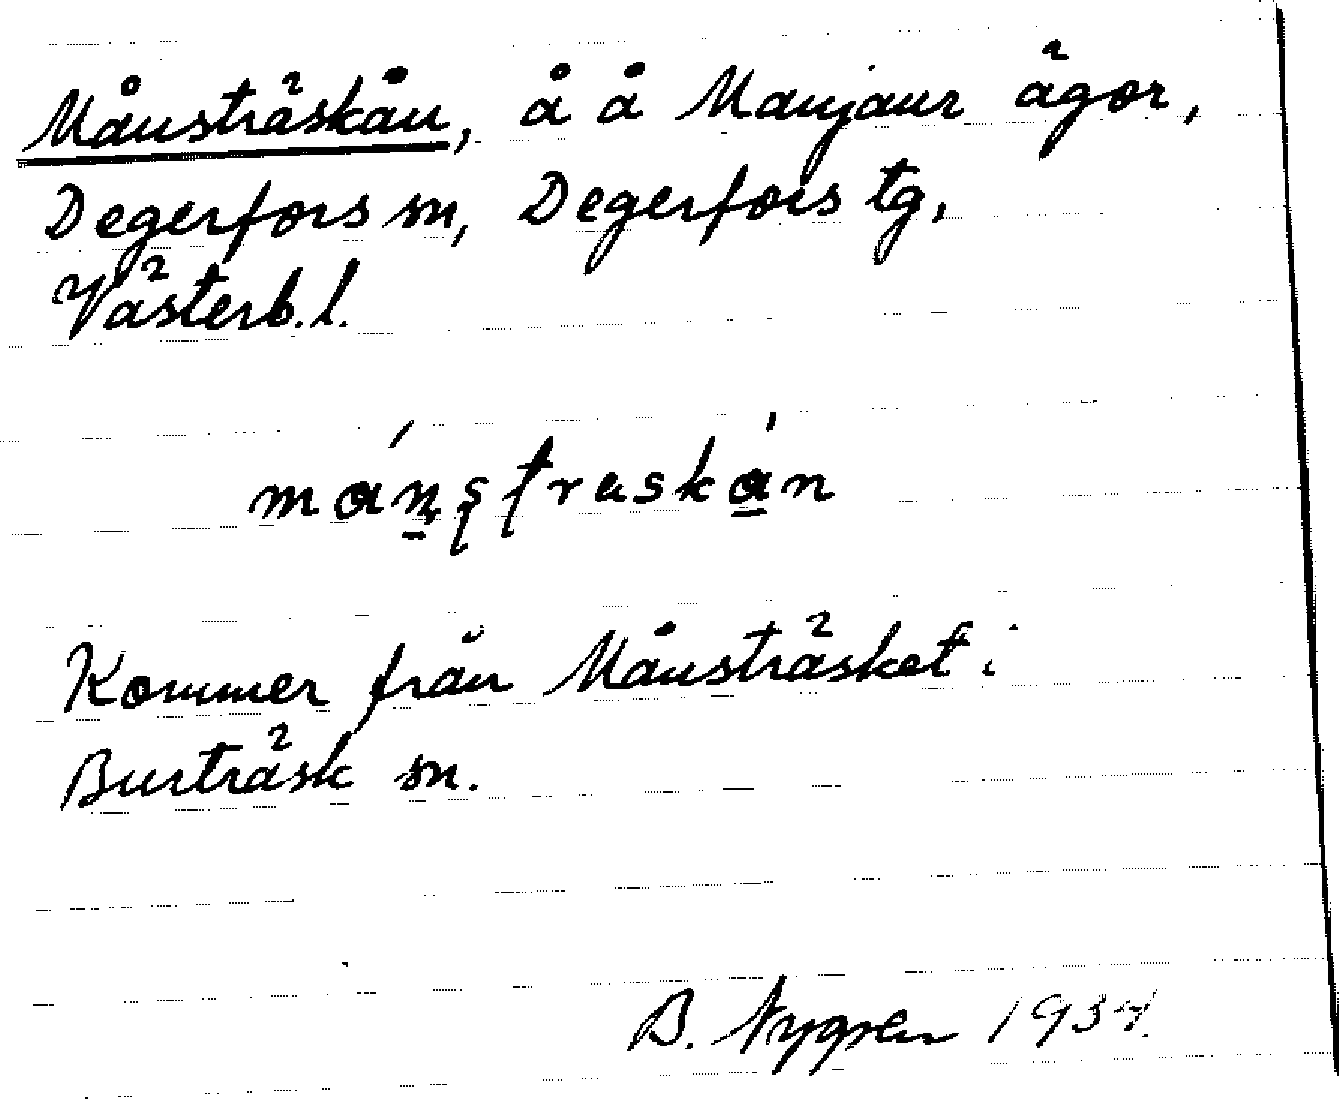 Månsträskån, å å Manjaur ägor,
Degerfors sn, Degerfors tg,
Västerb.l.
Kommer från Månsträsket i
Burträsk sn.
B. Nygren 1937.